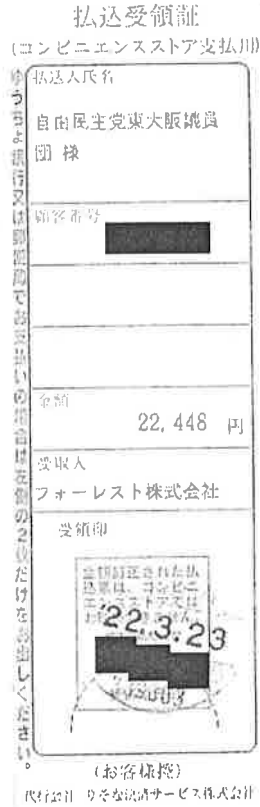 払込受領証
(コンビニエンスストア支払用)
ゆうちょ銀行又は郵便局でお支払いの場合は左側の2枚だけをお出しください。
払込人氏名
自由民主党東大阪議員
団 様
顧客番号
金額
22,448 円
受取人
フォーレスト株式会社
受領印
金額訂正された払
込票は、コンビニ
エンスストアでは
'22.3.23
(お客様控)
代行会社 りそな決済サービス株式会社